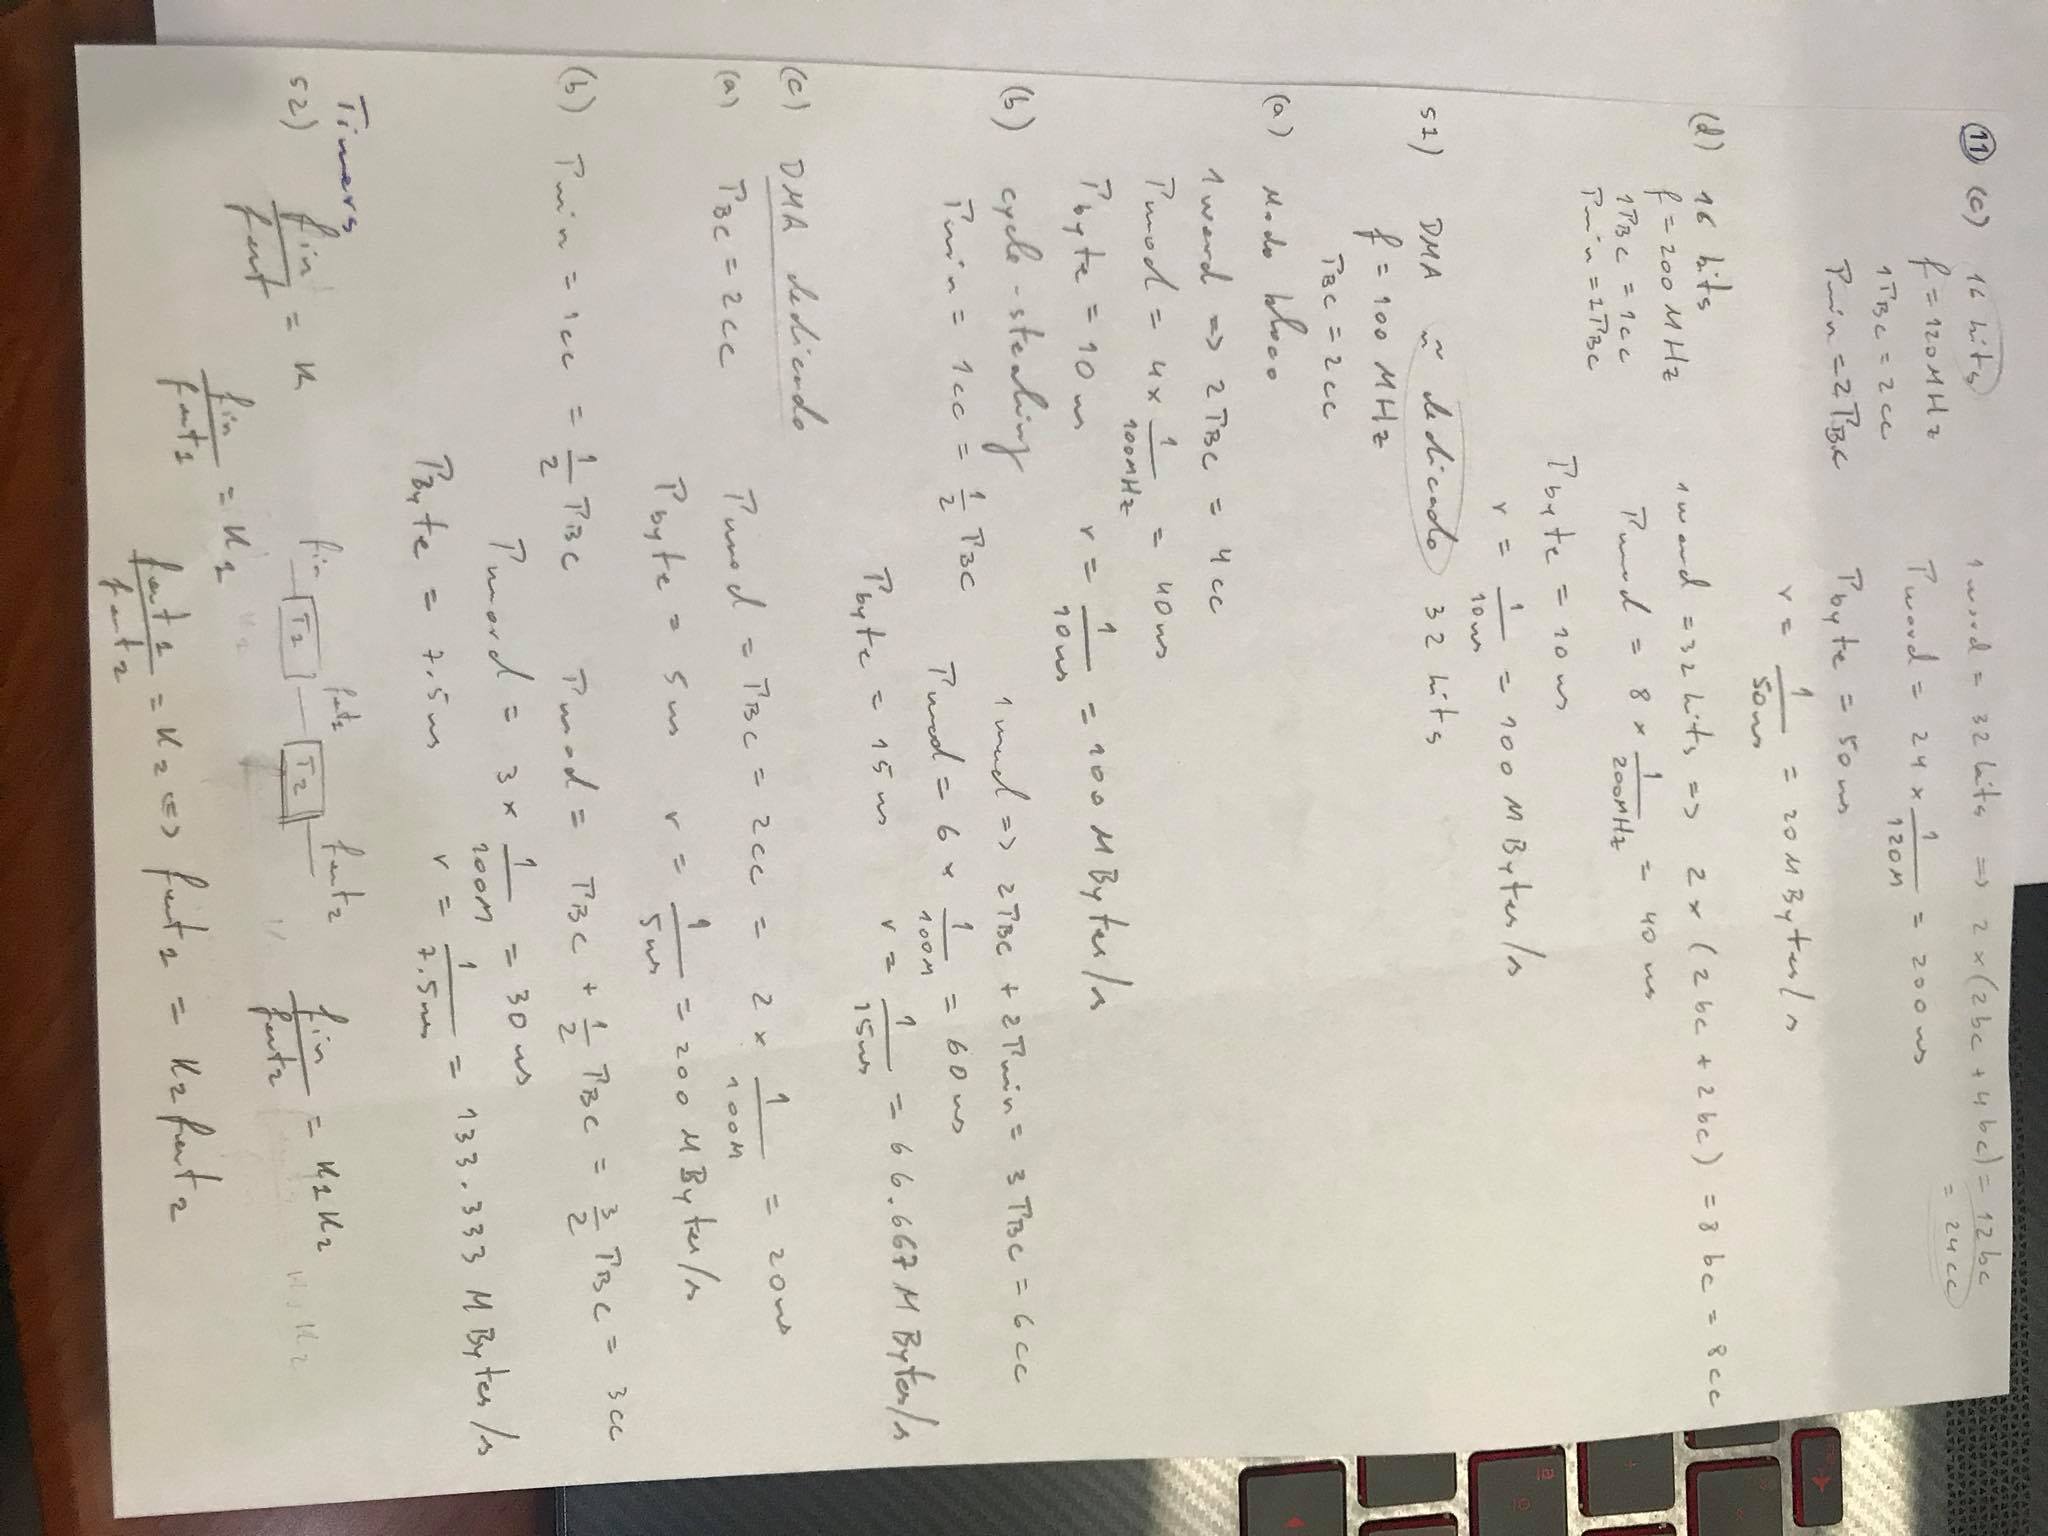 11 (c) 16 bits 1 word = 32 bits => 2 x (2bc + 4bc) = 12bc
f = 120MHz = 24cc
Tword = 24 x 1/120M = 200ns
1TBC = 2cc
Tmin = 2TBC Tbyte = 50ns
r = 1/50ns = 20 MBytes/s
(d) 16 bits 1 word = 32 bits => 2 x (2bc + 2bc) = 8bc = 8cc
f = 200 MHz
Tword = 8 x 1/200MHz = 40 ns
1TBC = 1cc
Tmin = 1TBC
Tbyte = 10 ns
r = 1/10ns = 100 MBytes/s
51) DMA ñ dedicado 32 bits
f = 100 MHz
TBC = 2cc
(a) Modo bloco
1 word => 2TBC = 4cc
Tword = 4x 1/100MHz = 40ns
Tbyte = 10 ns r = 1/10ns = 100 MBytes/s
(b) cycle-stealing 1 word => 2TBC + 2Tmin = 3TBC = 6cc
Tmin = 1cc = 1/2 TBC Tword = 6 x 1/100M = 60ns
Tbyte = 15ns r = 1/15ns = 66.667 MBytes/s
(c) DMA dedicado
(a) TBC = 2cc Tword = TBC = 2cc = 2 x 1/100M = 20ns
Tbyte = 5ns r = 1/5ns = 200 MBytes/s
(b) Tmin = 1cc = 1/2 TBC Tword = TBC + 1/2 TBC = 3/2 TBC = 3cc
Tword = 3 x 1/100M = 30ns
TByte = 7.5ns r = 1/7.5ns = 133.333 MBytes/s
Timers
52) fin/fout = K fin T1 fout1 T2 fout2 fin/fout2 = K1 K2
fin/fout1 = K1
fout1/fout2 = K2 <=> fout1 = K2 fout2